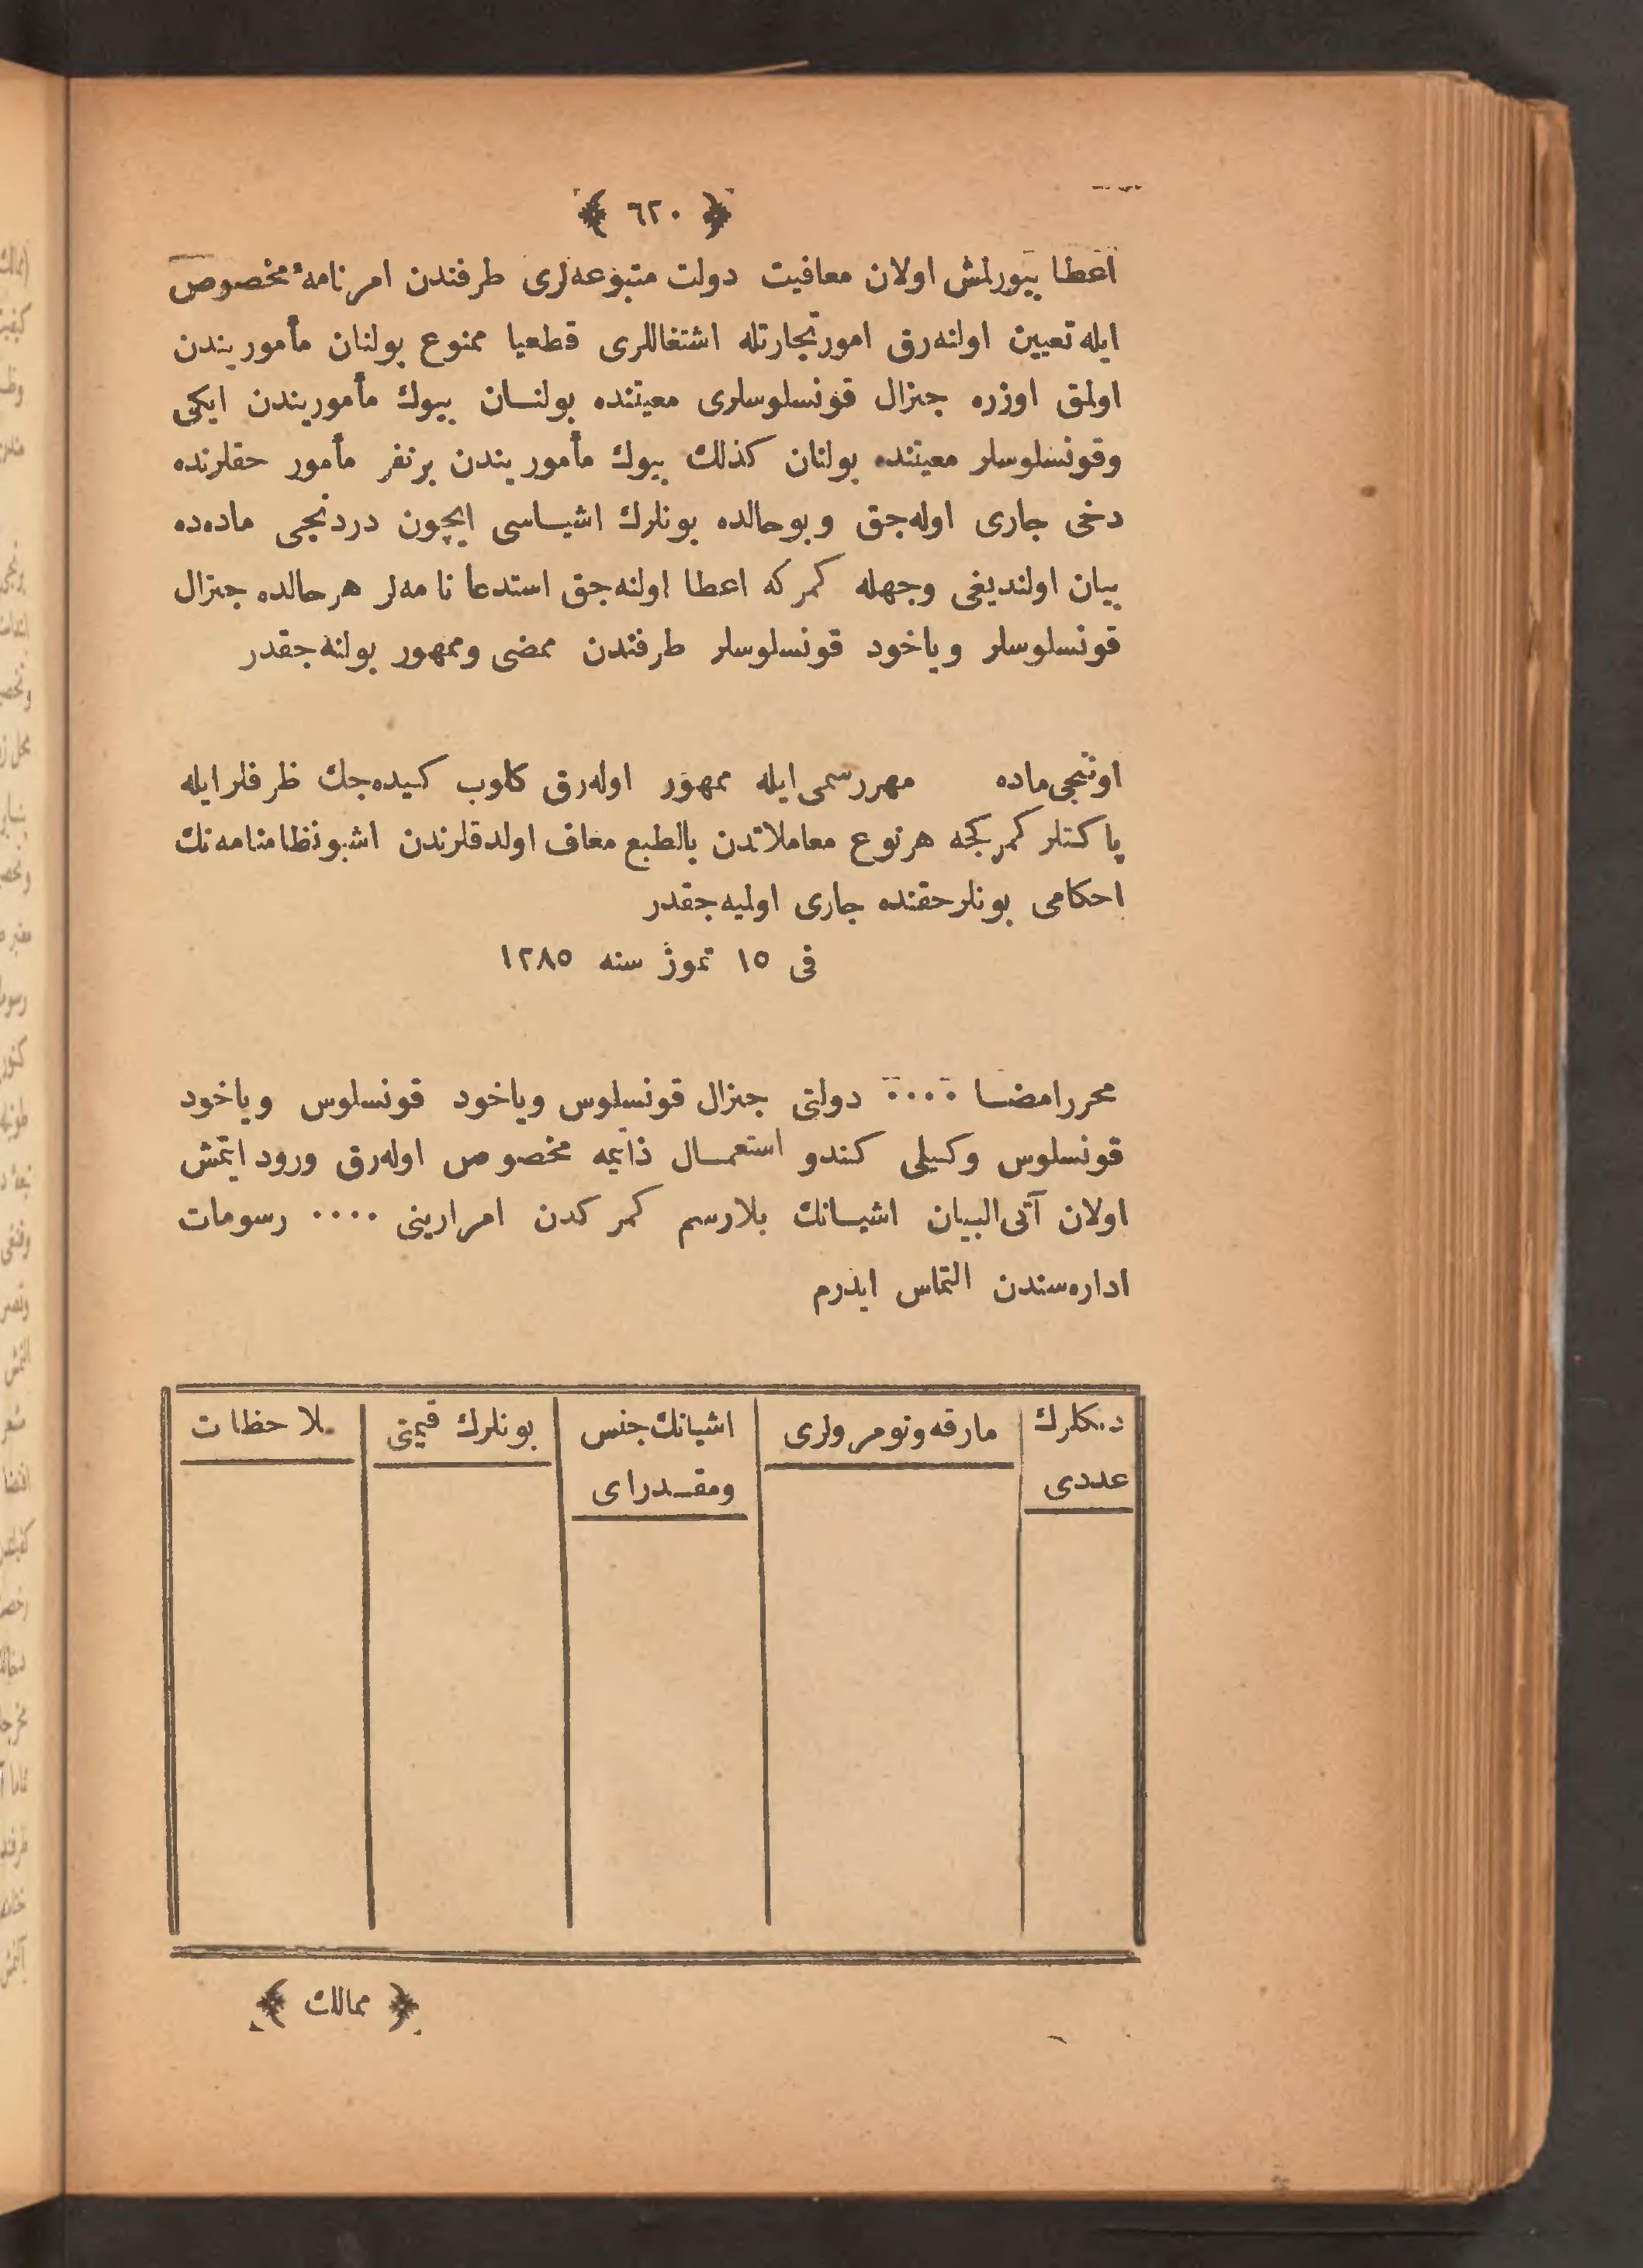 ﴿ ٦٢٠ ﴾
اعطا بیورلمش اولان معافیت دولت متبوعه‌لری طرفندن امر نامهٔ مخصوص
ایله تعیین اولنه‌رق امور تجارتله اشتغاللری قطعیا ممنوع بولنان مأموریندن
اولمق اوزره جنرال قونسلوسلری معیتنده بولنان بیوك مأموریندن ایکی
وقونسلوسلر معیتنده بولنان کذلك بیوك مأموریندن برنفر مأمور حقلرنده
دخی جاری اوله‌جق وبو حالده بونلرك اشیاسی ایچون دردنجی ماده‌ده
بیان اولندیغی وجهله کمرکه اعطا اولنه‌جق استدعا نامه‌لر هر حالده جنرال
قونسلوسلر ویاخود قونسلوسلر طرفندن ممضی وممهور بولنه‌جقدر
اوننجی ماده مهر رسمی ایله ممهور اوله‌رق کلوب کیده‌جك ظرفلر ایله
پاکتلر کمرکجه هر نوع معاملاتدن بالطبع معاف اولدقلرندن اشبو نظامنامه‌نك
احکامی بونلر حقنده جاری اولیه‌جقدر
فی ١٥ تموز سنه ١٢٨٥
محرر امضا ٠٠٠٠ دولتی جنرال قونسلوس ویاخود قونسلوس ویاخود
قونسلوس وکیلی کندو استعمال ذاتیمه مخصوص اوله‌رق ورود ایتمش
اولان آتی البیان اشیانك بلا رسم کمرکدن امرارینی ٠٠٠٠ رسومات
اداره‌سندن التماس ایدرم
دنكلرك عددی
مارقه ونومرولری
اشیانك جنس ومقدرای
بونلرك قیمتی
ملاحظات
﴿ ممالك ﴾